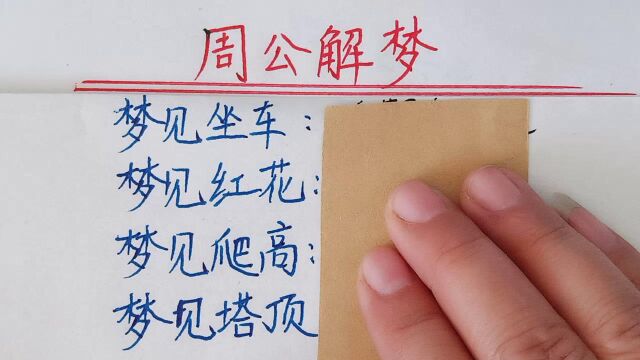 周公解梦
梦见坐车：
梦见红花：
梦见爬高：
梦见塔顶